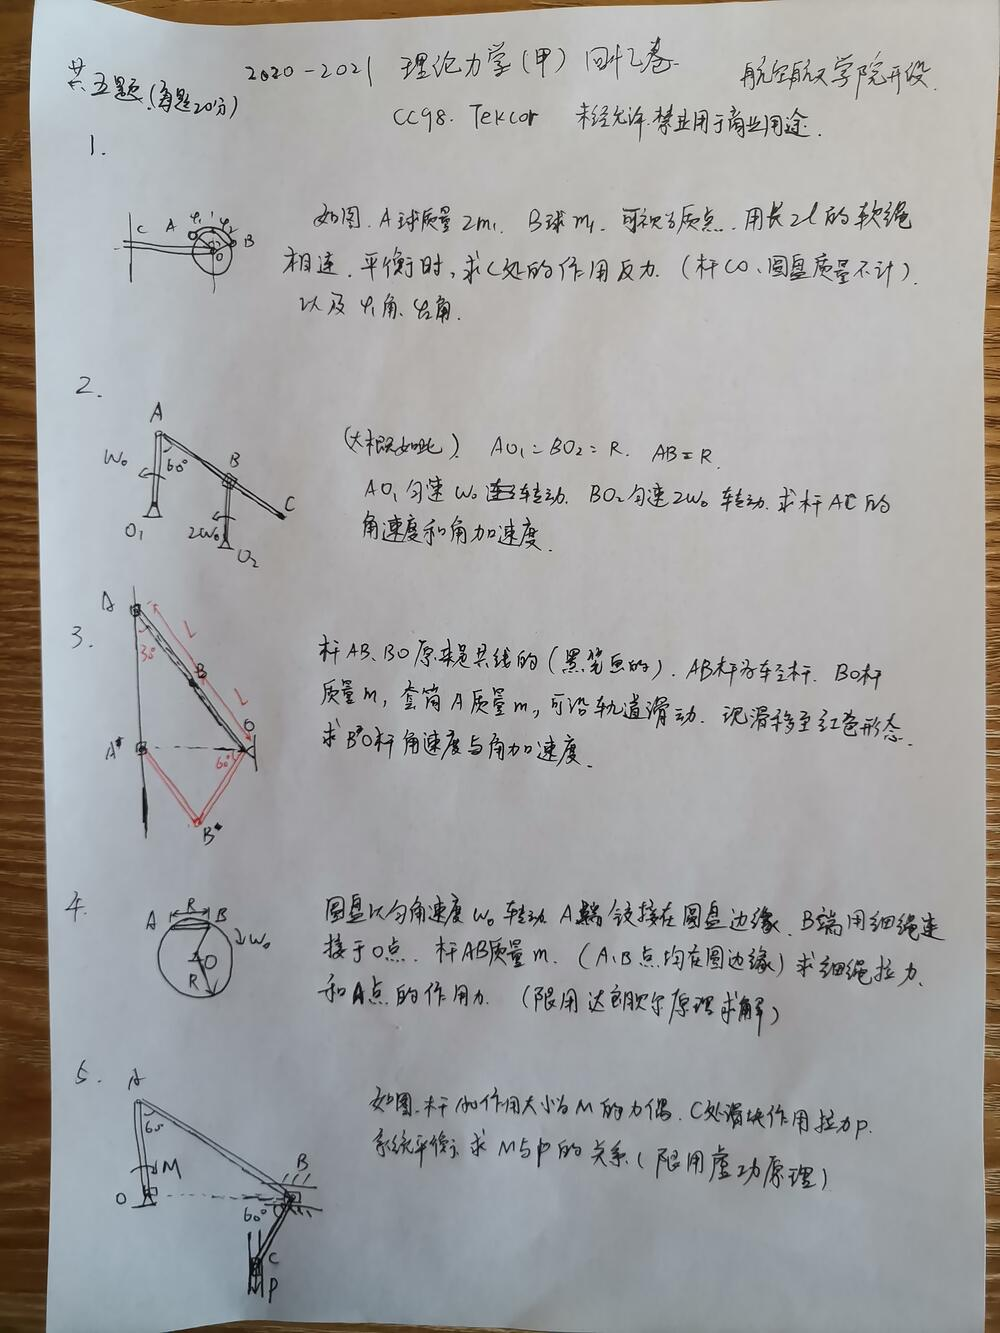 2020-2021 理论力学(甲)回忆卷
航空航天学院开设
共五题.(每题20分)
CC98. Tekcor 未经允许.禁止用于商业用途.
1.
C A φ1 φ2 B
O
如图.A球质量2m. B球m. 可视为质点.用长2l的软绳
相连.平衡时,求C处的作用反力.(杆CO、圆盘质量不计).
以及φ1角.φ2角.
2.
A
ω0 60° B
C
O1 2ω0 O2
(大概如此). AO1=BO2=R. AB=R.
AO1匀速ω0 转动. BO2匀速2ω0 转动.求杆AC的
角速度和角加速度.
3.
A
L
30°
B
L
O
A* 60°
B*
杆AB、BO原来是共线的(黑笔画的).AB杆为轻杆. BO杆
质量m,套筒A质量m,可沿轨道滑动.现滑移至红色形态.
求B*O杆角速度与角加速度.
4.
R
A B
ω0
O
R
圆盘以匀角速度ω0转动 A端铰接在圆盘边缘.B端用细绳连
接于O点. 杆AB质量m.(A、B点均在圆边缘)求细绳拉力.
和A点的作用力. (限用达朗贝尔原理求解)
5.
A
60°
M
B
O
60°
C
P
如图.杆AO作用大小为M的力偶.C处滑块作用拉力P.
系统平衡,求M与P的关系.(限用虚功原理)